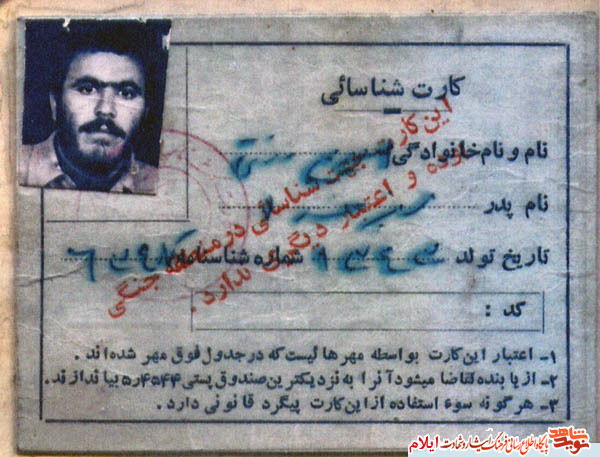 کارت شناسائی
نام و نام خانوادگی
نام پدر
تاریخ تولد ۱۳۴۳ شماره شناسنامه
کد :
این کارت جهت شناسائی در منطقه جنگی
بوده و اعتبار دیگری ندارد.
۱- اعتبار این کارت بواسطه مهرهائیست که در جدول فوق مهر شده اند.
۲- از یابنده تقاضا میشود آنرا به نزدیکترین صندوق پستی بیاندازند.
۳- هرگونه سوء استفاده از این کارت پیگرد قانونی دارد.
نوید شاهد
پایگاه اطلاع رسانی فرهنگ ایثار و شهادت ایلام